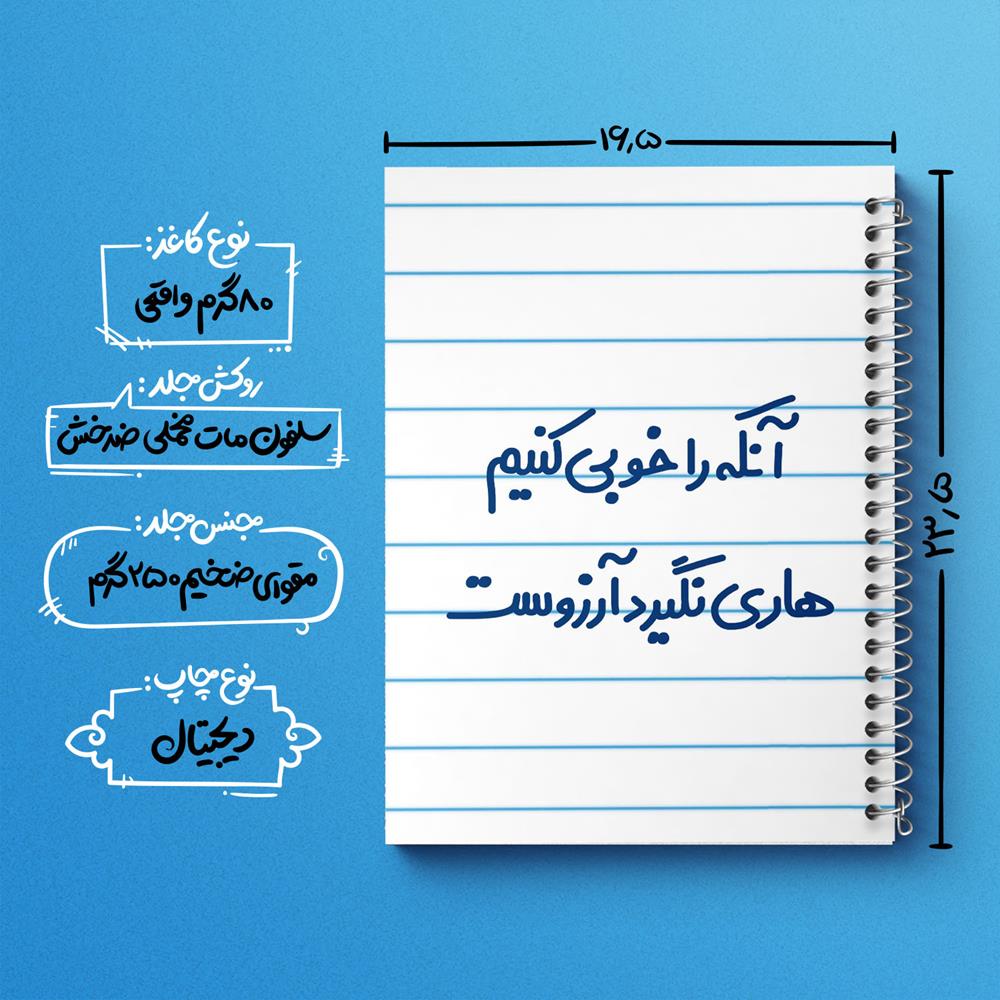 ۱۶٫۵
۲۳٫۵
نوع کاغذ:
۸۰ گرم واقعی
روکش جلد:
سلفون مات مخملی ضدخش
جنس جلد:
مقوای ضخیم ۲۵۰ گرم
نوع چاپ:
دیجیتال
آنکه را خوبی کنیم
هاری نگیرد آرزوست